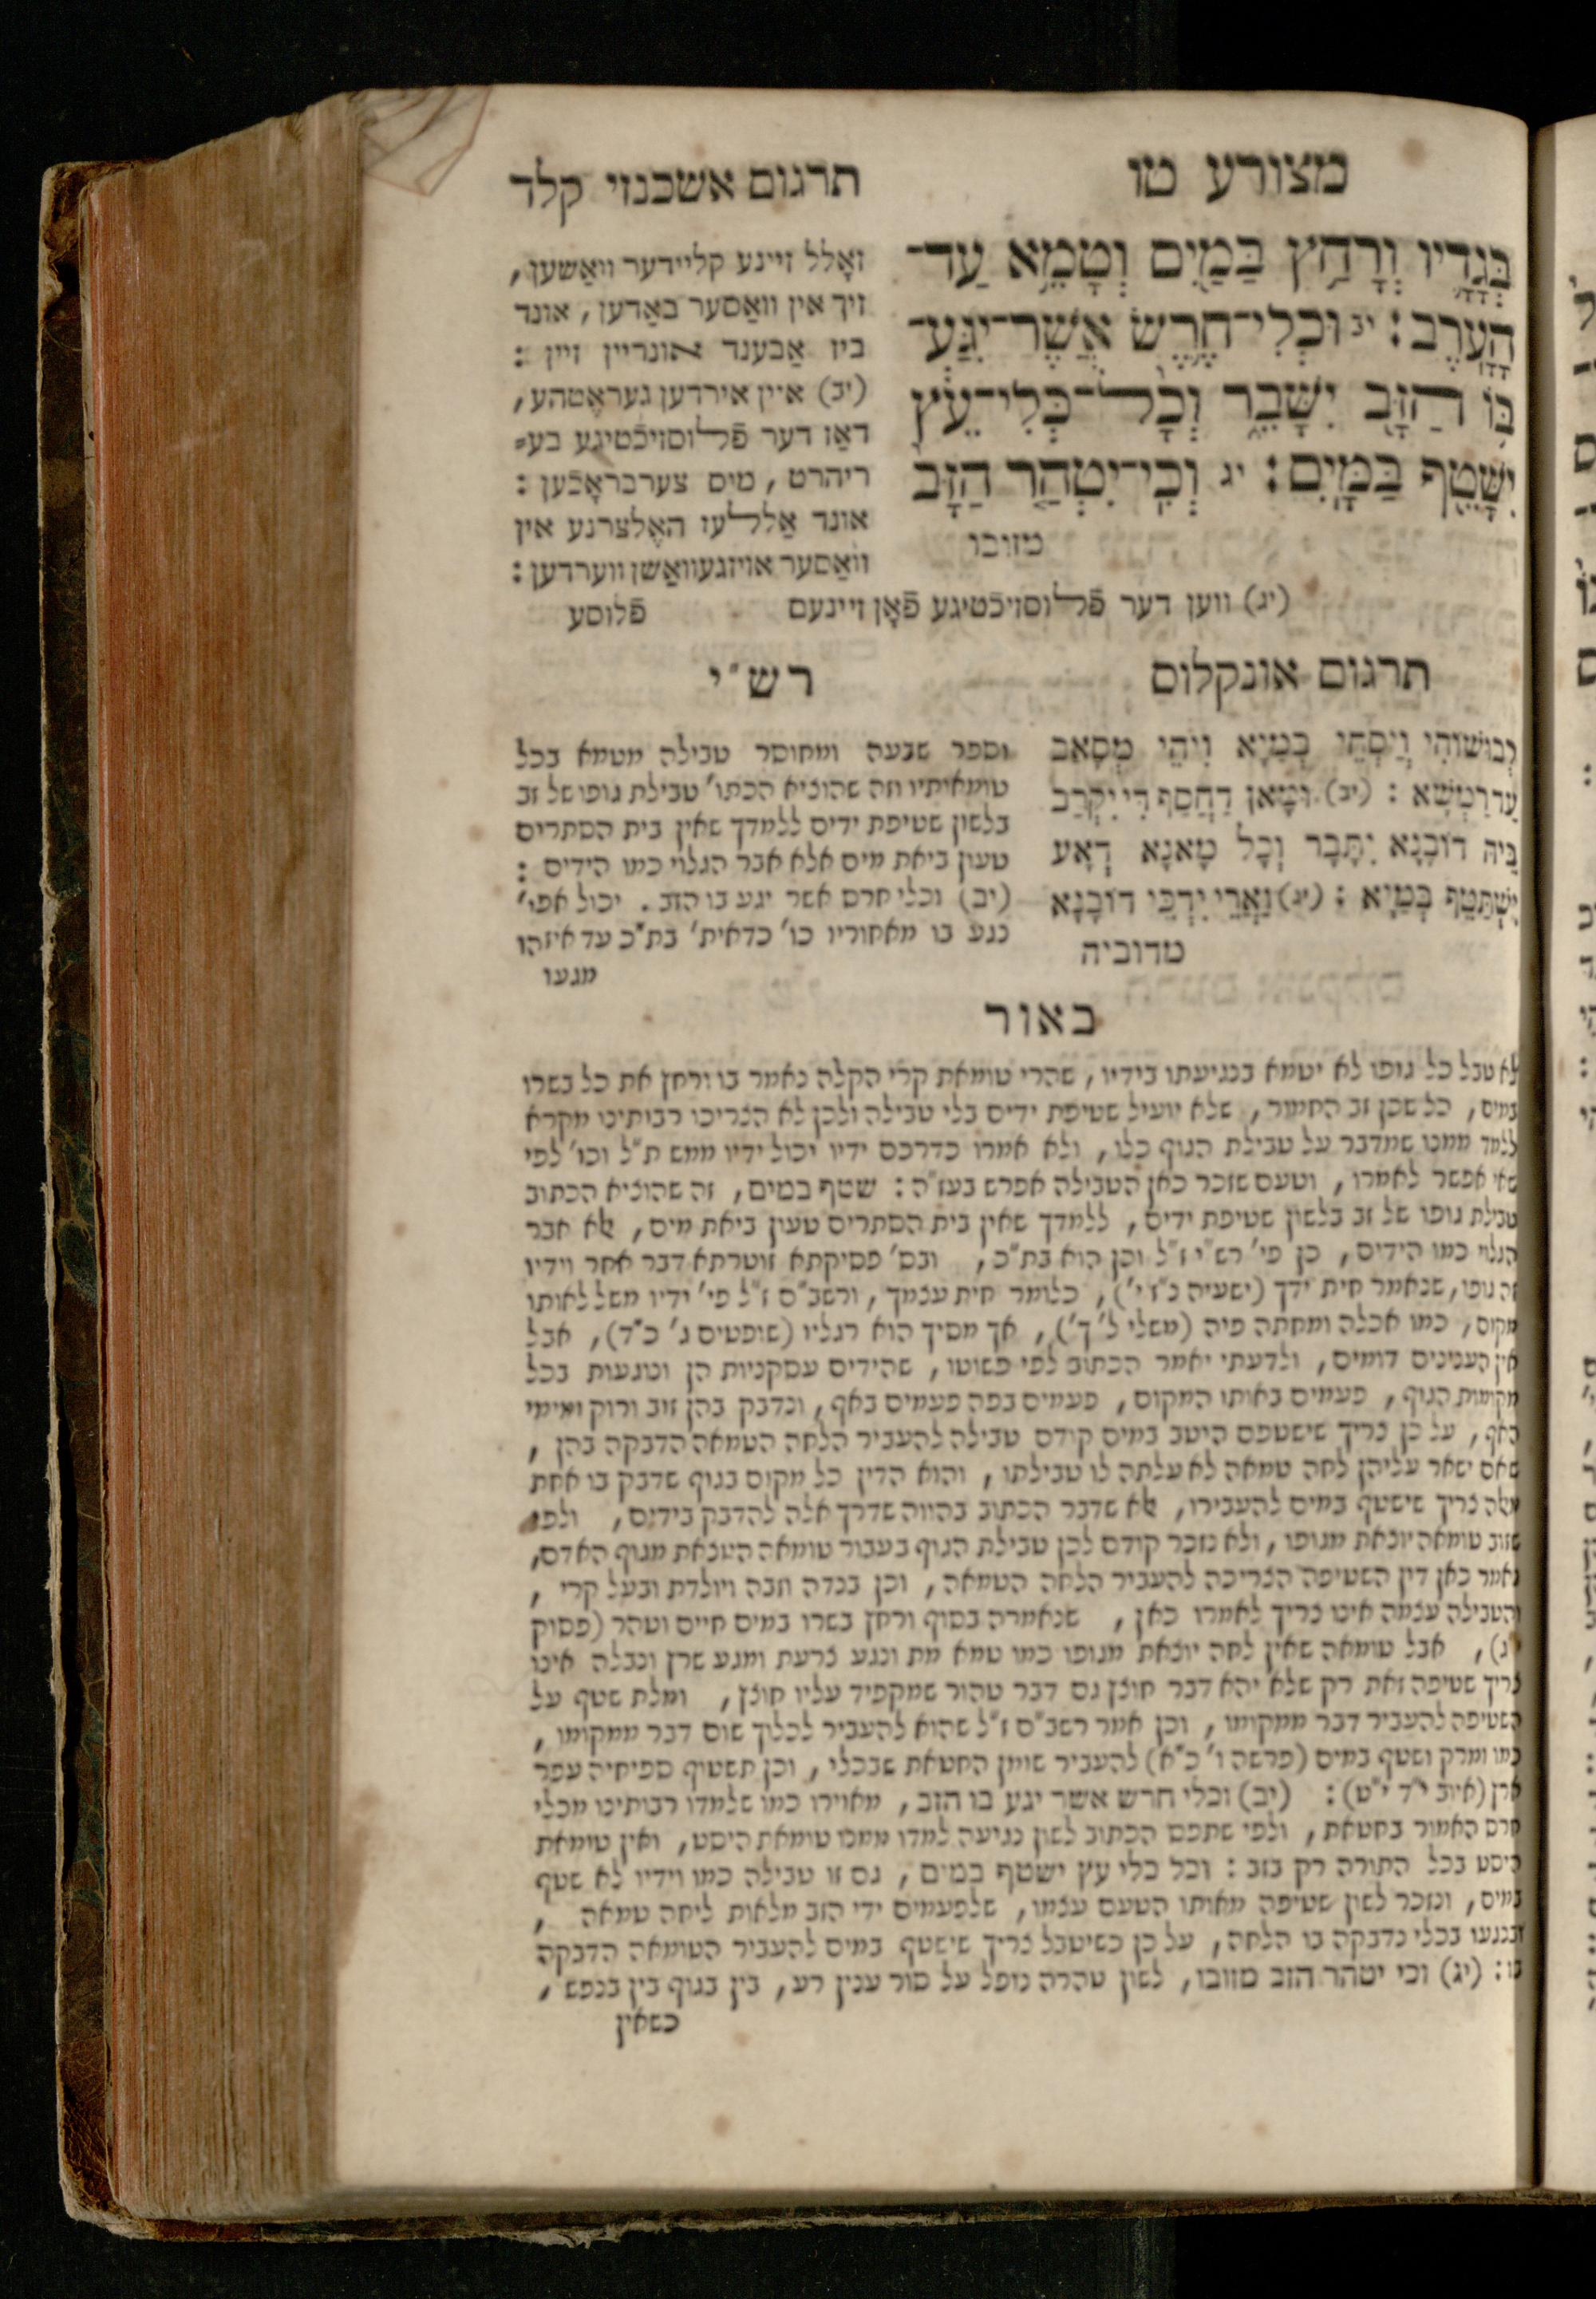 מצורע טו
תרגום אשכנזי קלד
בְּגָדָ֛יו וְרָחַ֥ץ בַּמַּ֖יִם וְטָמֵ֥א עַד־
הָעָֽרֶב׃ יב וּכְלִי־חֶ֛רֶשׂ אֲשֶׁר־יִגַּע־
בּ֥וֹ הַזָּ֖ב יִשָּׁבֵ֑ר וְכׇ֨ל־כְּלִי־עֵ֔ץ
יִשָּׁטֵ֖ף בַּמָּֽיִם׃ יג וְכִֽי־יִטְהַ֤ר הַזָּב
מזובו
זאָלל זיינע קליידער וואַשען,
זיך אין וואַסער באַדען, אונד
ביז אַבענד אונריין זיין :
(יב) איין אירדען געראֶטהע,
דאַז דער פֿלוסזיכֿטיגע בע=
ריהרט, מוס צערבראָכֿען :
אונד אַללעז האֶלצרנע אין
וואַסער אויזגעוואַשן ווערדען :
(יג) ווען דער פֿלוסזיכֿטיגע פֿאָן זיינעם
פֿלוסע
תרגום אונקלוס
לְבוּשׁוֹהִי וְיַסְחֵי בְמַיָא וִיהֵי מְסָאַב
עַד רַמְשָׁא : (יב) וּמָאן דַחֲסַף דִי יִקְרַב
בֵּיהּ דוֹבָנָא יִתָּבָר וְכָל מָאנָא דְאָע
יִשְׁתַּטַף בְּמַיָא : (יג) וַאֲרֵי יִדְכֵּי דוֹבָנָא
מדוביה
רש"י
וספר שבעה ומחוסר טבילה מטמא בכל
טומאותיו וזה שהוציא הכתו' טבילת גופו של זב
בלשון שטיפת ידים ללמדך שאין בית הסתרים
טעון ביאת מים אלא אבר הגלוי כמו הידים :
(יב) וכלי חרס אשר יגע בו הזב . יכול אפי'
נגע בו מאחוריו כו' כדאית' בת"כ עד איזהו
מגעו
באור
לא טבל כל גופו לא יטמא בנגיעתו בידיו, שהרי טומאת קרי הקלה נאמר בו ורחץ את כל בשרו
במים, כל שכן זב החמור, שלא יועיל שטיפת ידים בלי טבילה ולכן לא הצריכו רבותינו מקרא
ללמד ממנו שמדבר על טבילת הגוף כלו, ולא אמרו כדרכם ידיו יכול ידיו ממש ת"ל וכו' לפי
שאי אפשר לאמרו, וטעם שזכר כאן הטבילה אפרש בעז"ה : שטף במים, זה שהוציא הכתוב
טבילת גופו של זב בלשון שטיפת ידים, ללמדך שאין בית הסתרים טעון ביאת מים, אלא אבר
הגלוי כמו הידים, כן פי' רש"י ז"ל וכן הוא בת"כ, ובס' פסיקתא זוטרתא דבר אחר וידיו
זה גופו, שנאמר חית ידך (ישעיה נ"ז י'), כלומר חית עצמך, ורשב"ם ז"ל פי' ידיו משל לאותו
מקום, כמו אכלה ומחתה פיה (משלי ל' ך'), אך מסיך הוא רגליו (שופטים ג' כ"ד), אבל
אין הענינים דומים, ולדעתי יאמר הכתוב לפי פשוטו, שהידים עסקניות הן ונוגעות בכל
מקומות הגוף, פעמים באותו המקום, פעמים בפה פעמים באף, ונדבק בהן זוב ורוק ומימי
האף, על כן צריך שישטפם היטב במים קודם טבילה להעביר הלחה הטמאה הדבקה בהן,
שאם ישאר עליהן לחה טמאה לא עלתה לו טבילתו, והוא הדין כל מקום בגוף שדבק בו אחת
מאלה צריך שישטף במים להעבירו, אלא שדבר הכתוב בהווה שדרך אלה להדבק בידים, ולפי
שזוב טומאה יוצאת מגופו, ולא נזכר קודם לכן טבילת הגוף בעבור טומאה היוצאת מגוף האדם,
נאמר כאן דין השטיפה הצריכה להעביר הלחה הטמאה, וכן בנדה וזבה ויולדת ובעל קרי,
והטבילה עצמה אינו צריך לאמרו כאן, שנאמרה בסוף ורחץ בשרו במים חיים וטהר (פסוק
י"ג), אבל טומאה שאין לחה יוצאת מגופו כמו טמא מת ונגע צרעת ומגע שרץ ונבלה אינו
צריך שטיפה זאת רק שלא יהא דבר חוצץ גם דבר טהור שמקפיד עליו חוצץ, ומלת שטף על
השטיפה להעביר דבר ממקומו, וכן אמר רשב"ם ז"ל שהוא להעביר לכלוך שום דבר ממקומו,
כמו ומרק ושטף במים (פרשה ו' כ"א) להעביר שומן החטאת שבכלי, וכן תשטוף ספיחיה עפר
ארץ (איוב י"ד י"ט) : (יב) וכלי חרש אשר יגע בו הזב, מאוירו כמו שלמדו רבותינו מכלי
חרס האמור בחטאת, ולפי שתפס הכתוב לשון נגיעה למדו ממנו טומאת היסט, ואין טומאת
היסט בכל התורה רק בזב : וכל כלי עץ ישטף במים, גם זו טבילה כמו וידיו לא שטף
במים, ונזכר לשון שטיפה מאותו הטעם עצמו, שלפעמים ידי הזב מלאות ליחה טמאה,
ובנגעו בכלי נדבקה בו הלחה, על כן כשיטבל צריך שישטף במים להעביר הטומאה הדבקה
בו : (יג) וכי יטהר הזב מזובו, לשון טהרה נופל על סור ענין רע, בין בגוף בין בנפש,
כשאין